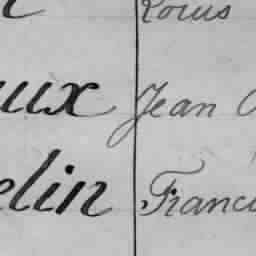 Louis
ux Jean
elin Franci